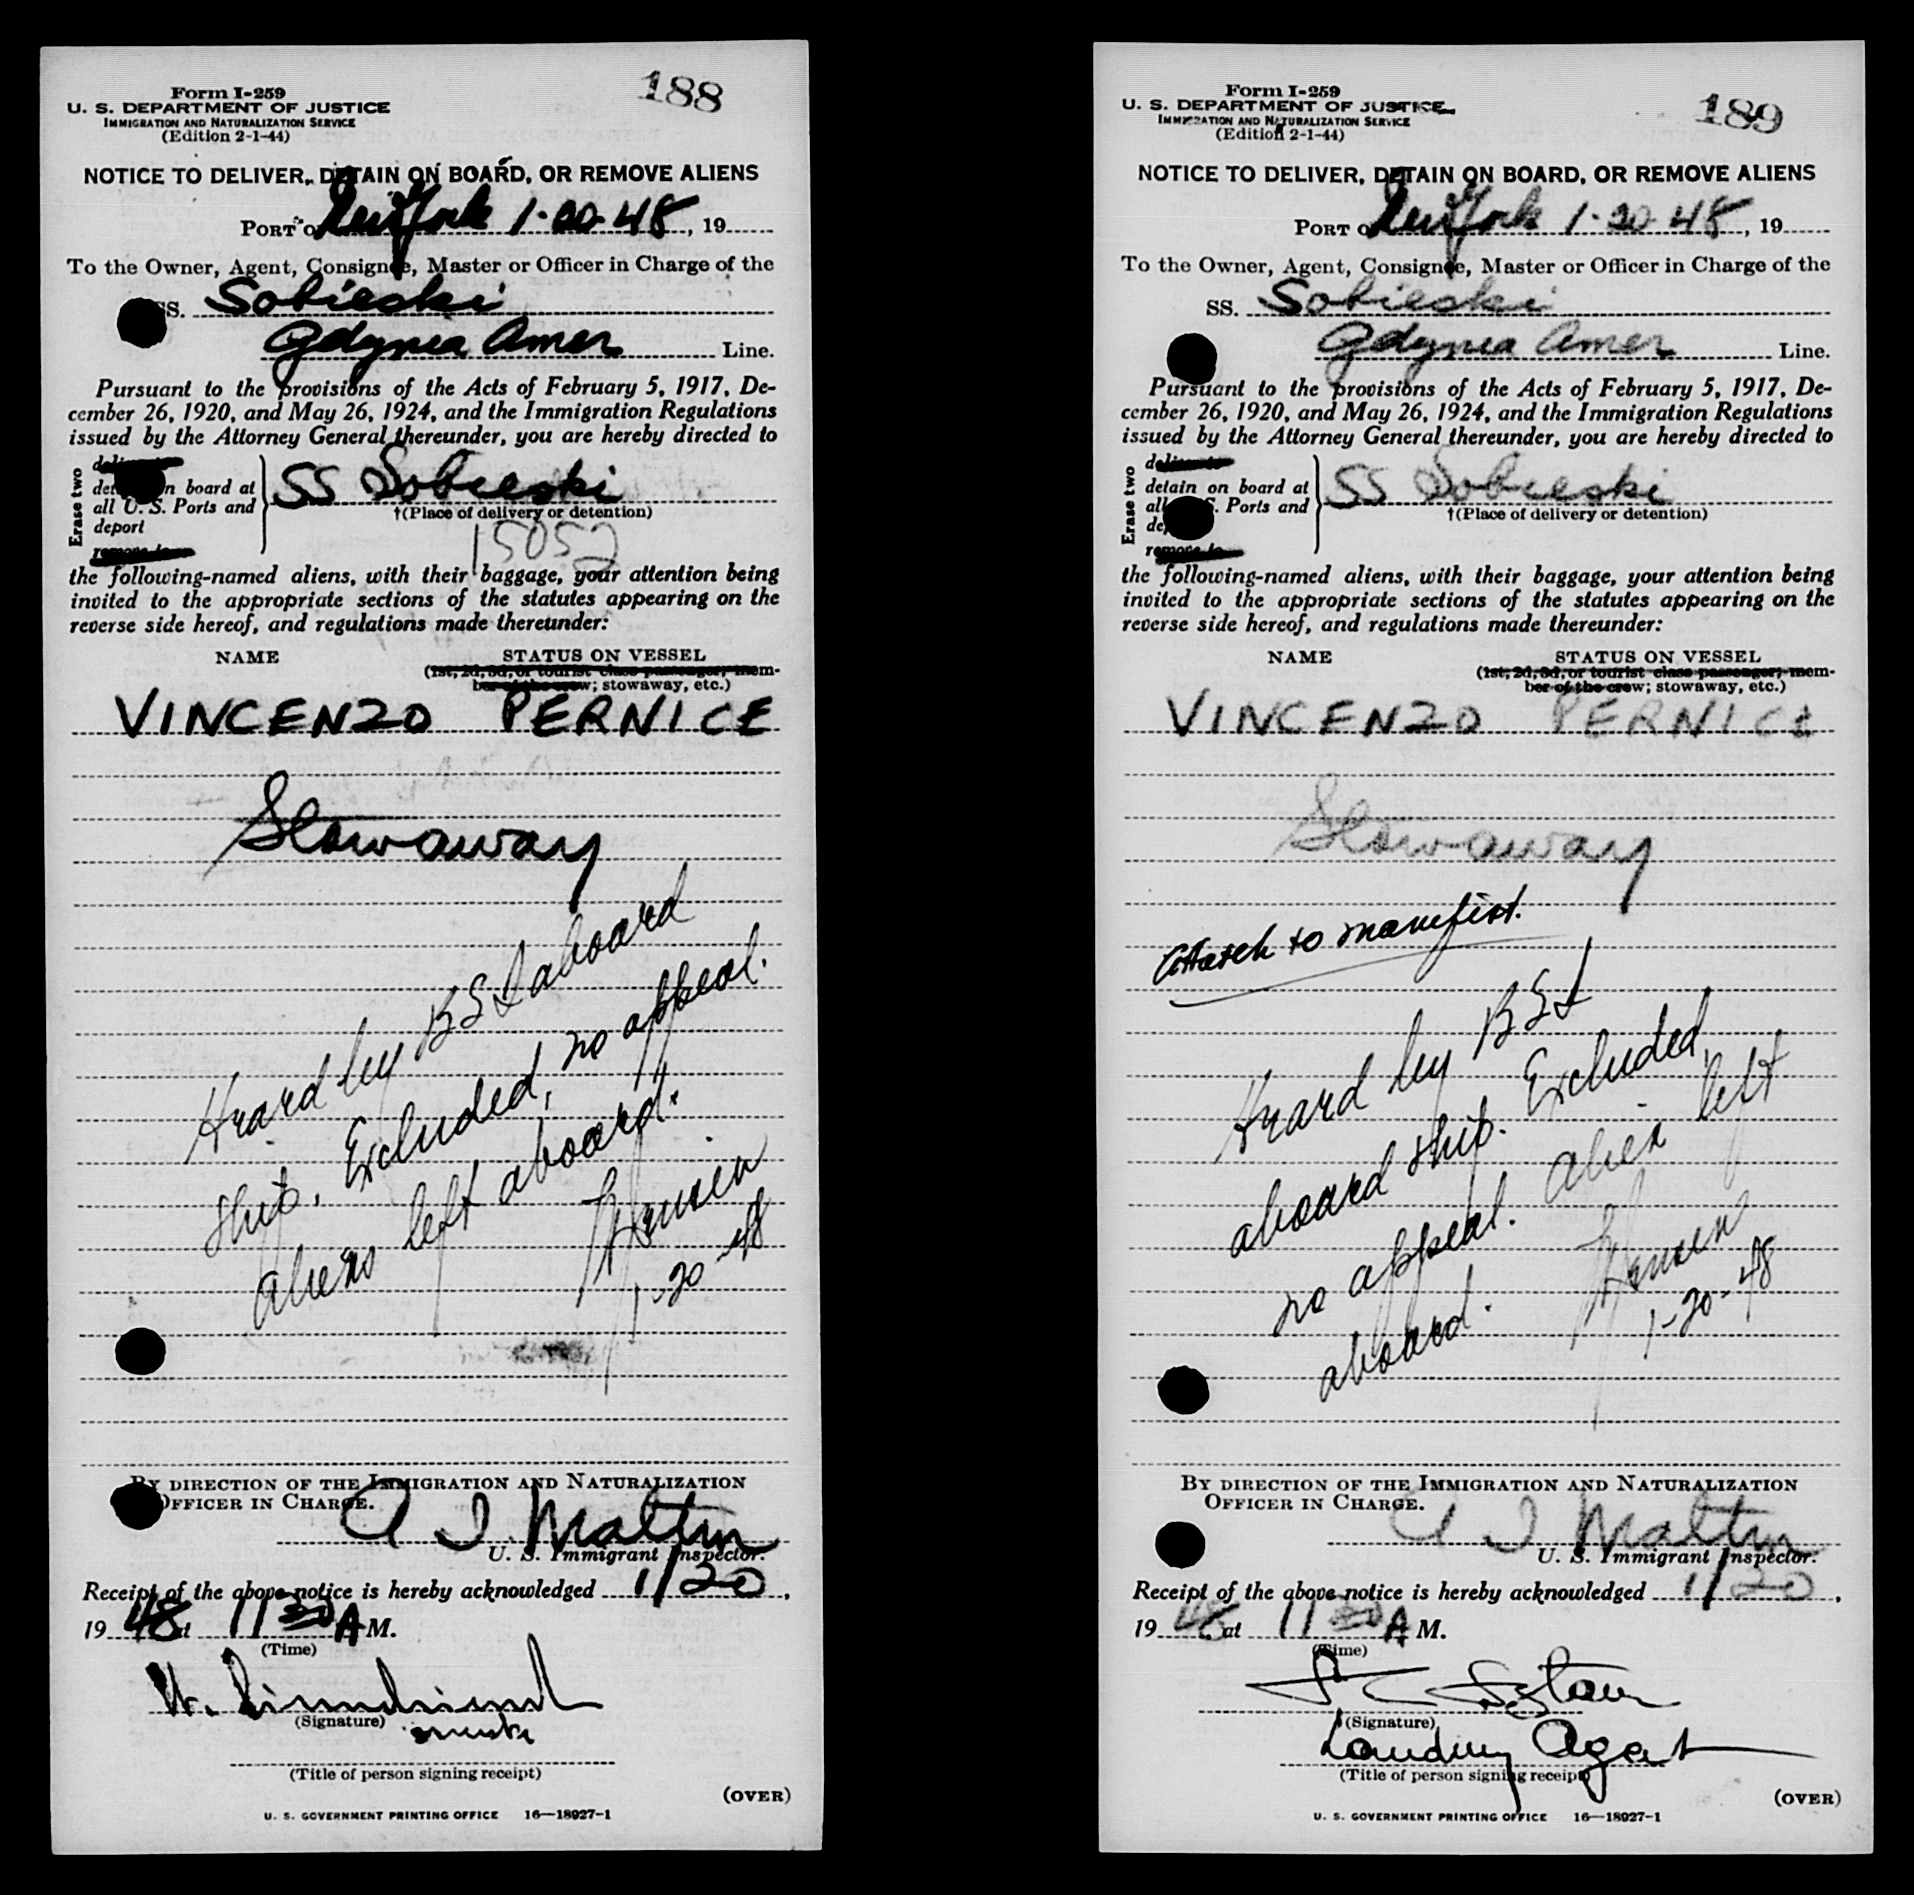 188
Form I-259
U. S. DEPARTMENT OF JUSTICE
IMMIGRATION AND NATURALIZATION SERVICE
(Edition 2-1-44)
NOTICE TO DELIVER, DETAIN ON BOARD, OR REMOVE ALIENS
PORT OF New York 1-20-48, 19
To the Owner, Agent, Consignee, Master or Officer in Charge of the
SS. Sobieski
Gdynia Amer Line.
Pursuant to the provisions of the Acts of February 5, 1917, De-
cember 26, 1920, and May 26, 1924, and the Immigration Regulations
issued by the Attorney General thereunder, you are hereby directed to
Erase two
deliver to
detain on board at
all U. S. Ports and
deport
remove to
SS Sobieski
†(Place of delivery or detention)
15052
the following-named aliens, with their baggage, your attention being
invited to the appropriate sections of the statutes appearing on the
reverse side hereof, and regulations made thereunder:
NAME STATUS ON VESSEL
(1st, 2d, 3d, or tourist class passenger; mem-
ber of the crew; stowaway, etc.)
VINCENZO PERNICE
Stowaway
Heard by BSI aboard
ship. Excluded, no appeal.
Aliens left aboard.
Hansen
1-20-48
BY DIRECTION OF THE IMMIGRATION AND NATURALIZATION
OFFICER IN CHARGE.
A I Maltin
U. S. Immigrant Inspector.
Receipt of the above notice is hereby acknowledged 1/20,
19 48 at 11 30 A M.
(Time)
(Signature)
(Title of person signing receipt)
(OVER)
U. S. GOVERNMENT PRINTING OFFICE 16—18927-1
189
Form I-259
U. S. DEPARTMENT OF JUSTICE
IMMIGRATION AND NATURALIZATION SERVICE
(Edition 2-1-44)
NOTICE TO DELIVER, DETAIN ON BOARD, OR REMOVE ALIENS
PORT OF New York 1-20-48, 19
To the Owner, Agent, Consignee, Master or Officer in Charge of the
SS. Sobieski
Gdynia Amer Line.
Pursuant to the provisions of the Acts of February 5, 1917, De-
cember 26, 1920, and May 26, 1924, and the Immigration Regulations
issued by the Attorney General thereunder, you are hereby directed to
Erase two
deliver to
detain on board at
all U. S. Ports and
deport
remove to
SS Sobieski
†(Place of delivery or detention)
the following-named aliens, with their baggage, your attention being
invited to the appropriate sections of the statutes appearing on the
reverse side hereof, and regulations made thereunder:
NAME STATUS ON VESSEL
(1st, 2d, 3d, or tourist class passenger; mem-
ber of the crew; stowaway, etc.)
VINCENZO PERNICE
Stowaway
Attach to manifest.
Heard by BSI
aboard ship. Excluded,
no appeal. Alien left
aboard.
Hansen
1-20-48
BY DIRECTION OF THE IMMIGRATION AND NATURALIZATION
OFFICER IN CHARGE.
A I Maltin
U. S. Immigrant Inspector.
Receipt of the above notice is hereby acknowledged 1/20,
19 48 at 11 30 A M.
(Time)
(Signature)
Landing Agent
(Title of person signing receipt)
(OVER)
U. S. GOVERNMENT PRINTING OFFICE 16—18927-1